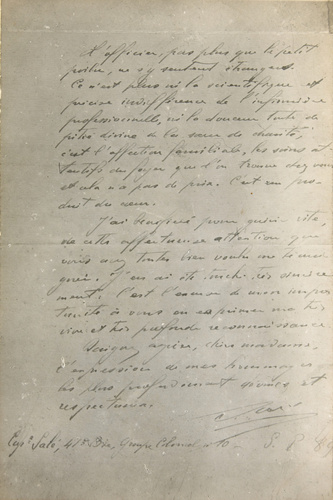 L'officier, pas plus que le petit
poilu, ne s'y sentent étrangers.
Ce n'est plus ni la scientifique et
précise indifférence de l'infirmière
professionnelle, ni la douceur toute de
pitié divine de la sœur de charité,
c'est l'affection familiale, les soins at-
tentifs du foyer que l'on trouve chez vous
et cela n'a pas de prix. C'est un pro-
duit du cœur.
J'ai pour guérir vite,
de cette affectueuse attention que
vous avez toutes bien voulu me témoi-
gner. J'en ai été touché très sincère-
ment. C'est
à vous en exprimer ma très
vive et très profonde reconnaissance.
Daignez agréer, chère madame,
l'expression de mes hommages
les plus profondément émus et
respectueux.
Capne Salé, 41e Bie, Groupe S. P. 89